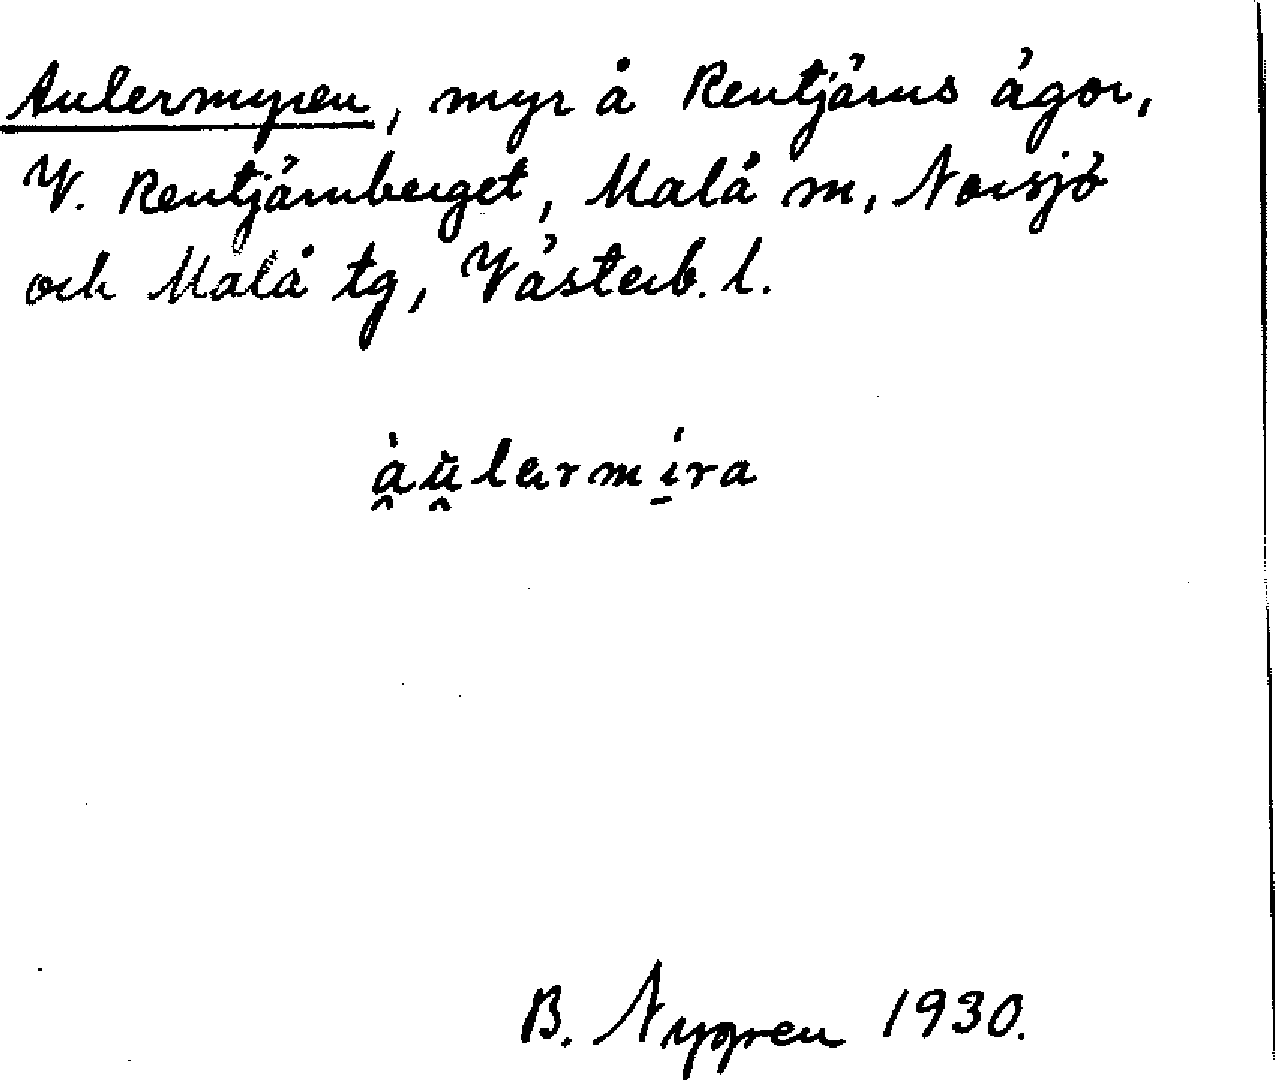 Aulermyren, myr å Rentjärns ägor,
V. Rentjärnberget, Malå sn, Norsjö
och Malå tg, Västerb. l.
àu̯lermíra
B. Nygren 1930.